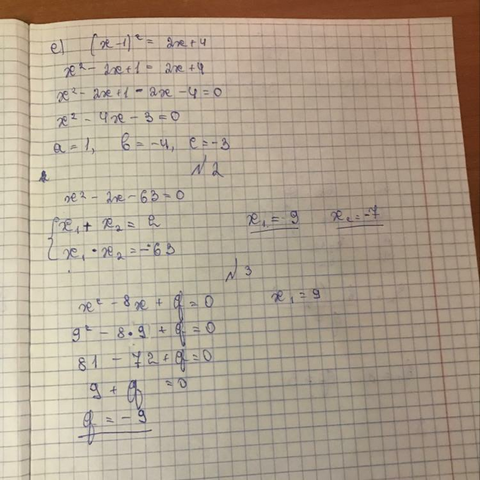 е) (x-1)² = 2x+4
x² - 2x+1 = 2x+4
x² - 2x+1 - 2x - 4 = 0
x² - 4x - 3 = 0
a = 1, b = -4, c = -3
N2
x² - 2x - 63 = 0
x₁ + x₂ = 2 x₁ = 9 x₂ = -7
x₁ · x₂ = -63
N3
x² - 8x + q = 0 x₁ = 9
9² - 8·9 + q = 0
81 - 72 + q = 0
9 + q = 0
q = -9